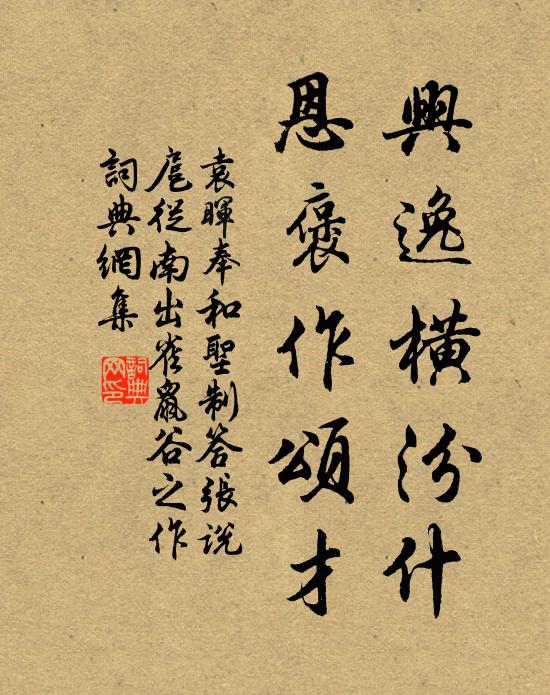 興逸橫汾什
恩褒作頌才
袁暉奉和聖制答張说
扈從南出雀鼠谷之作
詞典網集
詞典网印